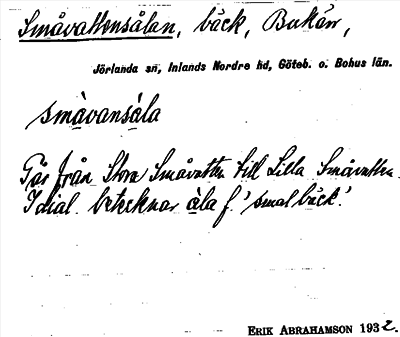 Småvattensålan, bäck, Bukärr,
Jörlanda sn, Inlands Nordre hd, Göteb. o. Bohus län.
småvansåla
Går från Stora Småvatten till Lilla Småvatten.
I dial. betecknar åla f. 'smal bäck'.
ERIK ABRAHAMSON 1932.